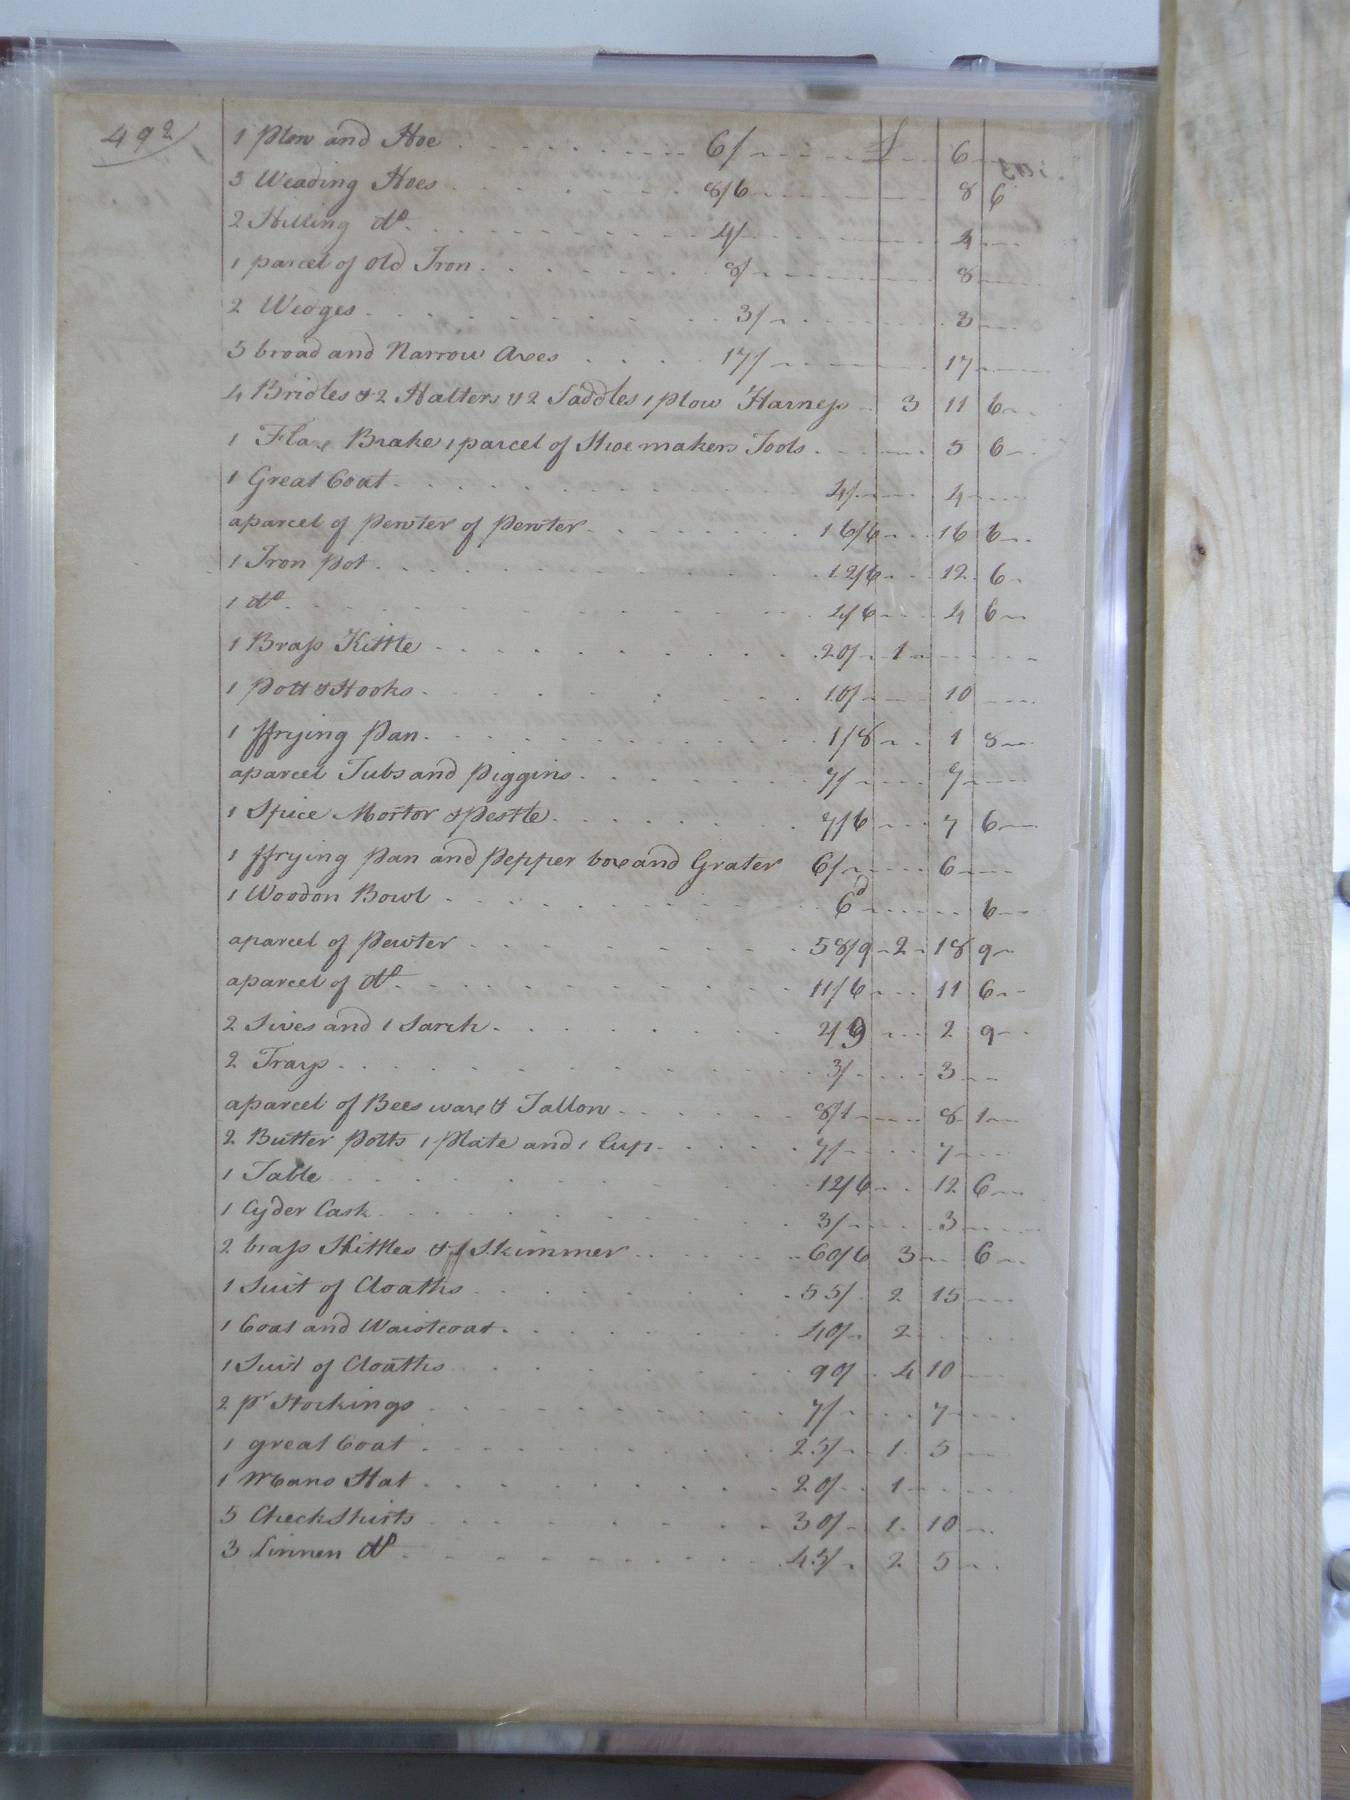 492
1 Plow and Hoe 6/ £ 6
3 Weading Hoes 8/6 8 6
2 Hilling do. 4/ 4
1 parcel of Old Iron 8/ 8
2 Wedges 3/ 3
5 broad and Narrow Axes 17/ 17
4 Bridles & 2 Halters & 2 Saddles 1 plow Harness 3 11 6
1 Flax Brake 1 parcel of Shoe makers Tools 5 6
1 Great Coat 4/ 4
a parcel of Pewter of Pewter 16/6 16 6
1 Iron Pot 12/6 12 6
1 do 4/6 4 6
1 Brass Kittle 20/ 1
1 Pott & Hooks 10/ 10
1 ffrying Pan 1/8 1 8
a parcel Tubs and Piggins 7/ 7
1 Spice Mortor & Pestle 7/6 7 6
1 ffrying Pan and Pepper box and Grater 6/ 6
1 Woodon Bowl 6d 6
a parcel of Pewter 58/9 2 18 9
a parcel of do 11/6 11 6
2 Sives and 1 Sarch 2/9 2 9
2 Trays 3/ 3
a parcel of Bees wax & Tallow 8/1 8 1
2 Butter Potts 1 Plate and 1 Cup 7/ 7
1 Table 12/6 12 6
1 Cyder Cask 3/ 3
2 brass Kittles & 1 Skimmer 60/6 3 6
1 Suit of Cloaths 55/ 2 15
1 Coat and Waistcoat 40/ 2
1 Suit of Cloaths 90/ 4 10
2 pr Stockings 7/ 7
1 great Coat 25/ 1 5
1 Mans Hat 20/ 1
5 Check Shirts 30/ 1 10
3 Linnen do 45/ 2 5